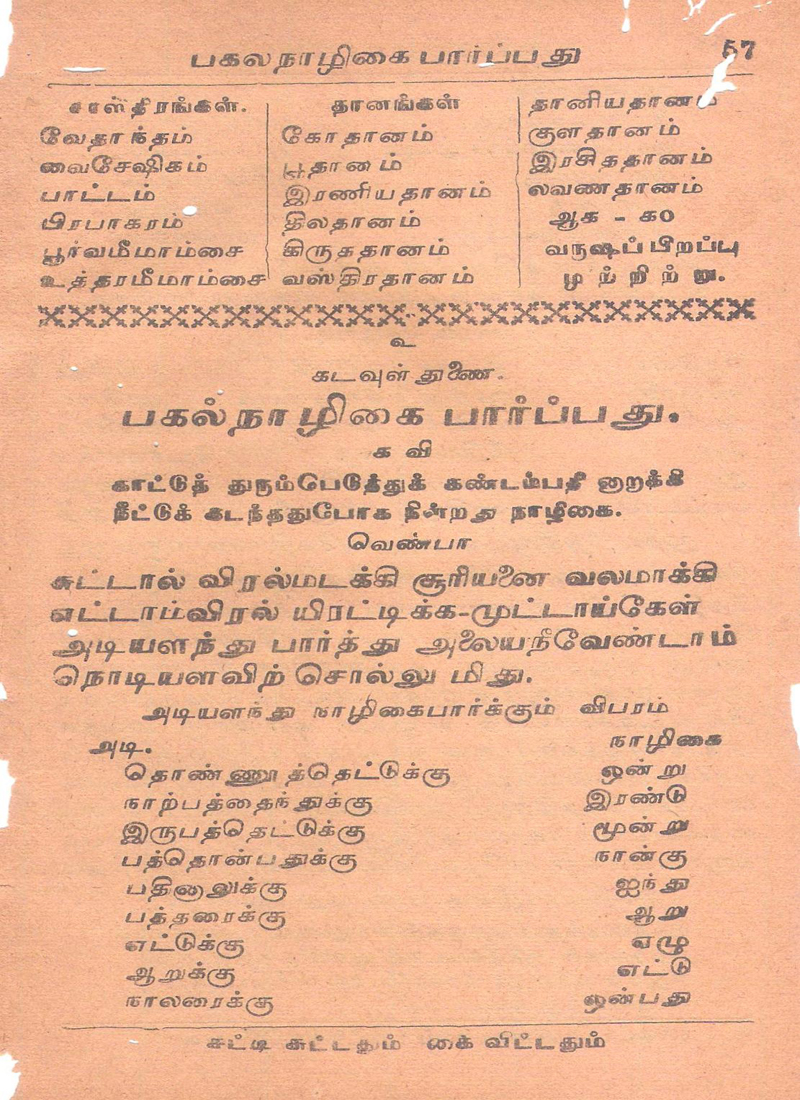 பகலநாழிகை பார்ப்பது 57
சாஸ்திரங்கள்.
வேதாந்தம்
வைசேஷிகம்
பாட்டம்
பிரபாகரம்
பூர்வமீமாம்சை
உத்தரமீமாம்சை
தானங்கள்
கோதானம்
பூதானம்
இரணியதானம்
திலதானம்
கிருததானம்
வஸ்திரதானம்
தானியதானம்
குளதானம்
இரசிததானம்
லவணதானம்
ஆக - க௦
வருஷப்பிறப்பு
முற்றிற்று.
உ
கடவுள் துணை.
பகல்நாழிகை பார்ப்பது.
கவி
காட்டுத் துரும்பெடுத்துக் கண்டம்பதி னாறாக்கி
நீட்டுக் கடந்ததுபோக நின்றது நாழிகை.
வெண்பா
சுட்டால் விரல்மடக்கி சூரியனை வலமாக்கி
எட்டாம்விரல் யிரட்டிக்க-முட்டாய்கேள்
அடியளந்து பார்த்து அலையநீவேண்டாம்
நொடியளவிற் சொல்லு மிது.
அடியளந்து நாழிகைபார்க்கும் விபரம்
அடி. நாழிகை
தொண்ணூத்தெட்டுக்கு ஒன்று
நாற்பத்தைந்துக்கு இரண்டு
இருபத்தெட்டுக்கு மூன்று
பத்தொன்பதுக்கு நான்கு
பதினாலுக்கு ஐந்து
பத்தரைக்கு ஆறு
எட்டுக்கு எழு
ஆறுக்கு எட்டு
நாலரைக்கு ஒன்பது
சுட்டி சுட்டதும் கை விட்டதும்